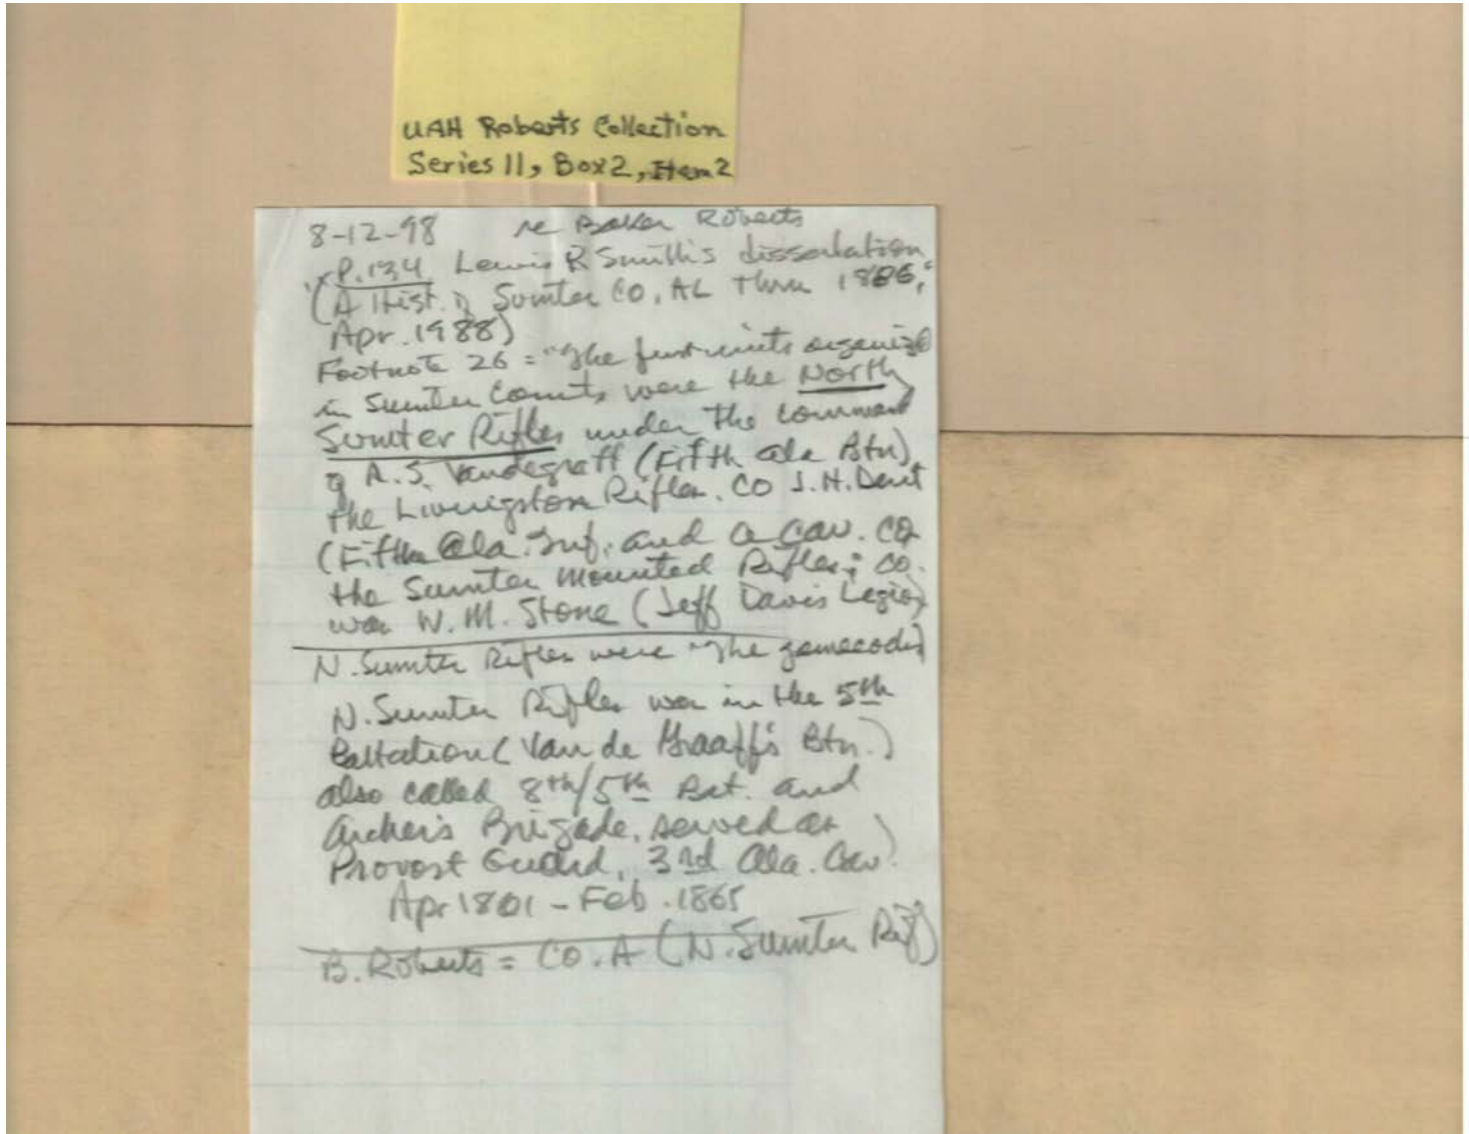 UAH Roberts Collection
Series 11, Box 2, Item 2
8-12-98 re Baker Roberts
P.134 Lewis R Smith's dissertation
(A Hist. of Sumter CO, AL Thru 1886,"
Apr. 1988)
Footnote 26 = "The first units organized
in Sumter County were the North
Sumter Rifles under the command
of A.S. Vandegraff (Fifth Ala Btn)
the Livingston Rifles. CO J.H. Dent
(Fifth Ala. Inf. and a Cav. CO
the Sumter Mounted Rifles; co.
was W.M. Stone (Jeff Davis Legion)
N. Sumter Rifles were "the gamecocks
N. Sumter Rifles was in the 5th
Battation (Van de Graaff's Btn.)
also called 8th/5th Bat. and
Archer's Brigade, served as
Provost Guard, 3rd Ala. Cav.)
Apr 1861 - Feb. 1865
B. Roberts = CO. A (N. Sumter Rif)